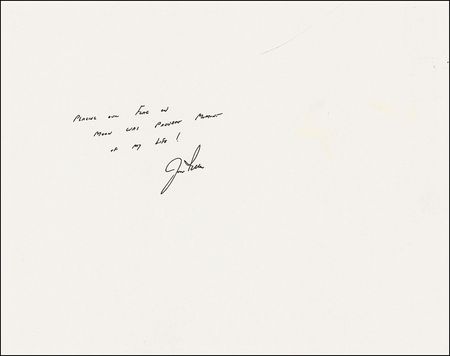 PLACING OUR FLAG ON
MOON WAS PROUDEST MOMENT
OF MY LIFE!
Jim Irwin